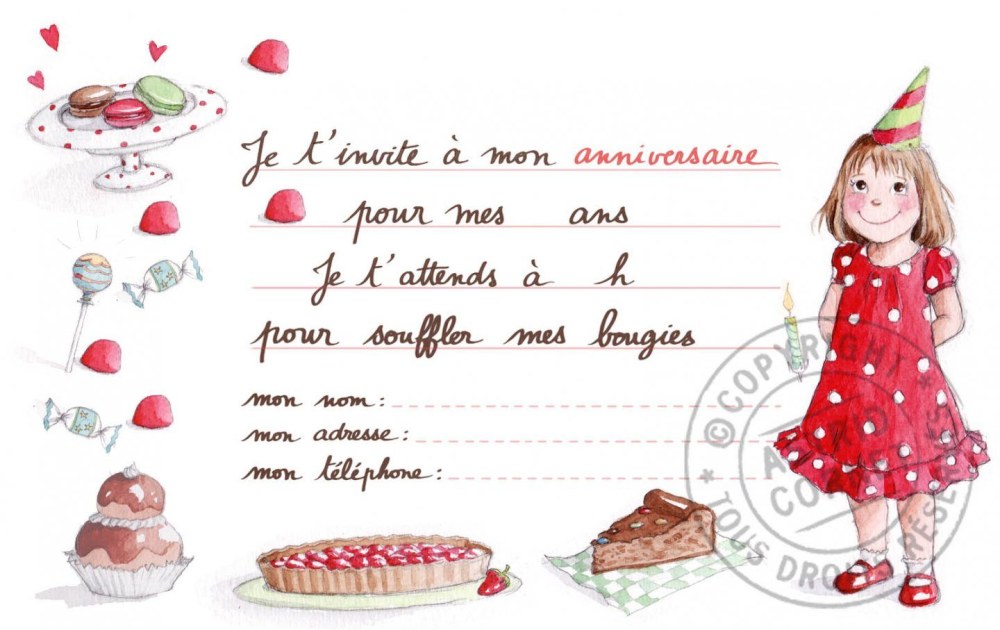 Je t'invite à mon anniversaire
pour mes ans
Je t'attends à h
pour souffler mes bougies
mon nom :
mon adresse :
mon téléphone :
© COPYRIGHT
TOUS DROITS RÉSERVÉS